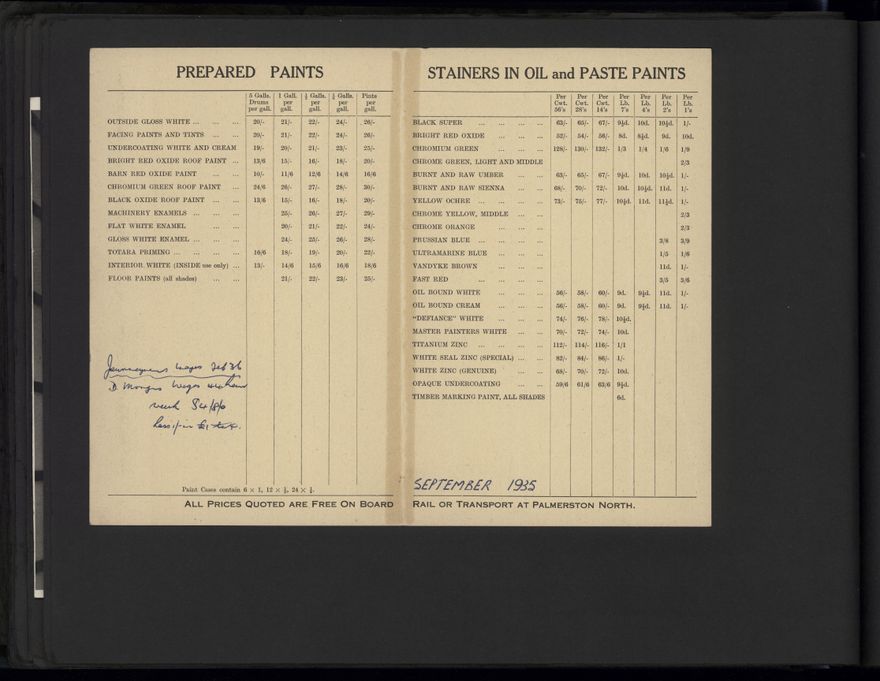 PREPARED PAINTS
5 Galls. Drums per gall. 1 Gall. per gall. ½ Galls. per gall. ¼ Galls. per gall. Pints per gall.
OUTSIDE GLOSS WHITE ... ... 20/- 21/- 22/- 24/- 26/-
FACING PAINTS AND TINTS ... ... 20/- 21/- 22/- 24/- 26/-
UNDERCOATING WHITE AND CREAM 19/- 20/- 21/- 23/- 25/-
BRIGHT RED OXIDE ROOF PAINT ... 13/6 15/- 16/- 18/- 20/-
BARN RED OXIDE PAINT ... ... 10/- 11/6 12/6 14/6 16/6
CHROMIUM GREEN ROOF PAINT ... 24/6 26/- 27/- 28/- 30/-
BLACK OXIDE ROOF PAINT ... ... 13/6 15/- 16/- 18/- 20/-
MACHINERY ENAMELS ... ... ... 25/- 26/- 27/- 29/-
FLAT WHITE ENAMEL ... ... 20/- 21/- 22/- 24/-
GLOSS WHITE ENAMEL ... ... ... 24/- 25/- 26/- 28/-
TOTARA PRIMING ... ... ... ... 16/6 18/- 19/- 20/- 22/-
INTERIOR WHITE (INSIDE use only) ... 13/- 14/6 15/6 16/6 18/6
FLOOR PAINTS (all shades) ... ... 21/- 22/- 23/- 25/-
Journeymens Wages Feb 36
D. Wages 44 hour
week
Paint Cases contain 6 × 1, 12 × ½, 24 × ¼.
ALL PRICES QUOTED ARE FREE ON BOARD
STAINERS IN OIL and PASTE PAINTS
Per Cwt. 56's Per Cwt. 28's Per Cwt. 14's Per Lb. 7's Per Lb. 4's Per Lb. 2's Per Lb. 1's
BLACK SUPER ... ... ... ... 63/- 65/- 67/- 9½d. 10d. 10½d. 1/-
BRIGHT RED OXIDE ... ... ... 52/- 54/- 56/- 8d. 8½d. 9d. 10d.
CHROMIUM GREEN ... ... ... 128/- 130/- 132/- 1/3 1/4 1/6 1/9
CHROME GREEN, LIGHT AND MIDDLE 2/3
BURNT AND RAW UMBER ... ... 63/- 65/- 67/- 9½d. 10d. 10½d. 1/-
BURNT AND RAW SIENNA ... ... 68/- 70/- 72/- 10d. 10½d. 11d. 1/-
YELLOW OCHRE ... ... ... ... 73/- 75/- 77/- 10½d. 11d. 11½d. 1/-
CHROME YELLOW, MIDDLE ... ... 2/3
CHROME ORANGE ... ... ... 2/3
PRUSSIAN BLUE ... ... ... ... 3/8 3/9
ULTRAMARINE BLUE ... ... ... 1/5 1/6
VANDYKE BROWN ... ... ... 11d. 1/-
FAST RED ... ... ... ... 3/5 3/6
OIL BOUND WHITE ... ... ... 56/- 58/- 60/- 9d. 9½d. 11d. 1/-
OIL BOUND CREAM ... ... ... 56/- 58/- 60/- 9d. 9½d. 11d. 1/-
"DEFIANCE" WHITE ... ... ... 74/- 76/- 78/- 10½d.
MASTER PAINTERS WHITE ... ... 70/- 72/- 74/- 10d.
TITANIUM ZINC ... ... ... ... 112/- 114/- 116/- 1/1
WHITE SEAL ZINC (SPECIAL) ... ... 82/- 84/- 86/- 1/-
WHITE ZINC (GENUINE) ... ... 68/- 70/- 72/- 10d.
OPAQUE UNDERCOATING ... ... 59/6 61/6 63/6 9½d.
TIMBER MARKING PAINT, ALL SHADES 6d.
SEPTEMBER 1935
RAIL OR TRANSPORT AT PALMERSTON NORTH.